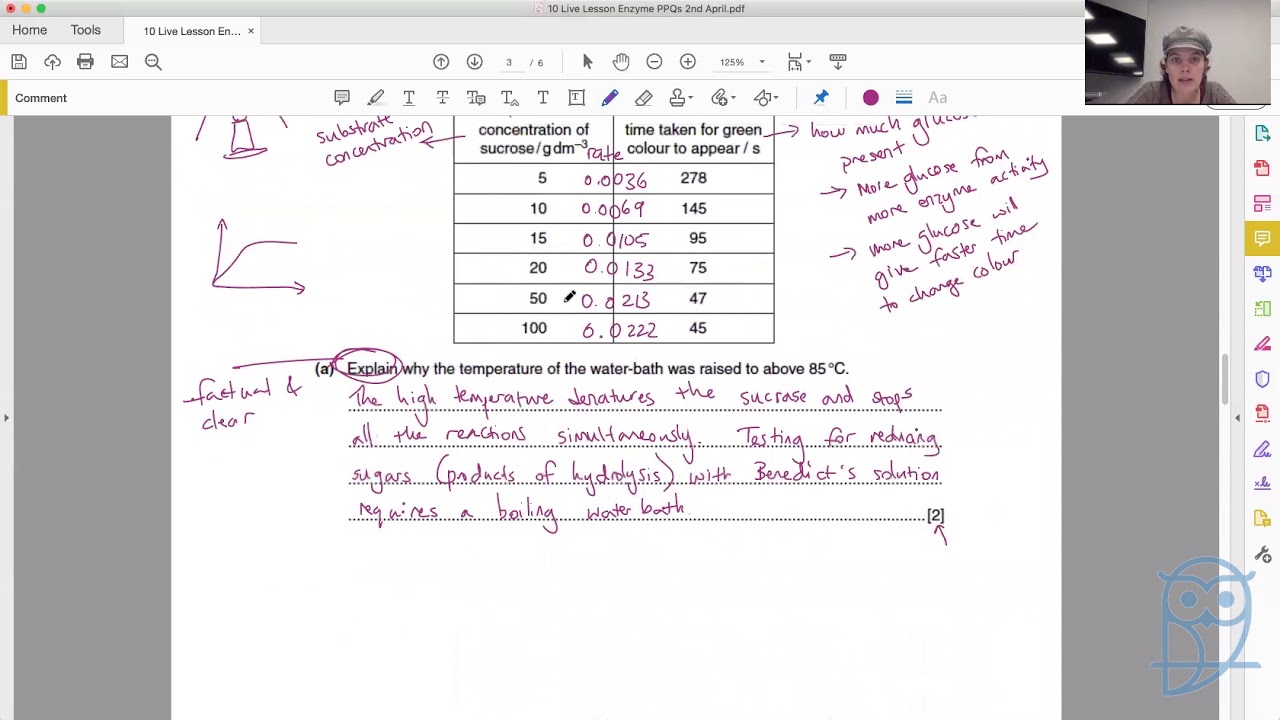 10 Live Lesson Enzyme PPQs 2nd April.pdf
Home Tools 10 Live Lesson En... ×
3 / 6 125%
Comment
Aa
substrate
concentration
concentration of
sucrose / g dm⁻³
rate
time taken for green
colour to appear / s
5 0.0036 278
10 0.0069 145
15 0.0105 95
20 0.0133 75
50 0.0213 47
100 0.0222 45
how much glucose
present
More glucose from
more enzyme activity
more glucose will
give faster time
to change colour
(a) Explain why the temperature of the water-bath was raised to above 85 °C.
factual &
clear
The high temperature denatures the sucrase and stops
all the reactions simultaneously. Testing for reducing
sugars (products of hydrolysis) with Benedict's solution
requires a boiling water bath.
[2]